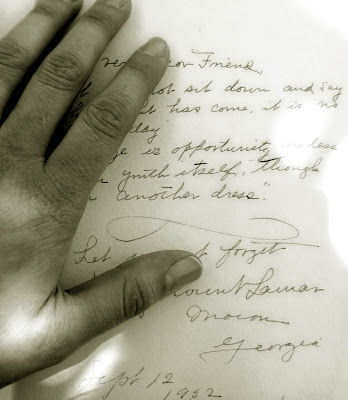 Friend,
not sit down and say
has come, it is no
day
is opportunity no less
youth itself, though
another dress".
Let forget
Lamar
Macon
Georgia
Sept 12
1952